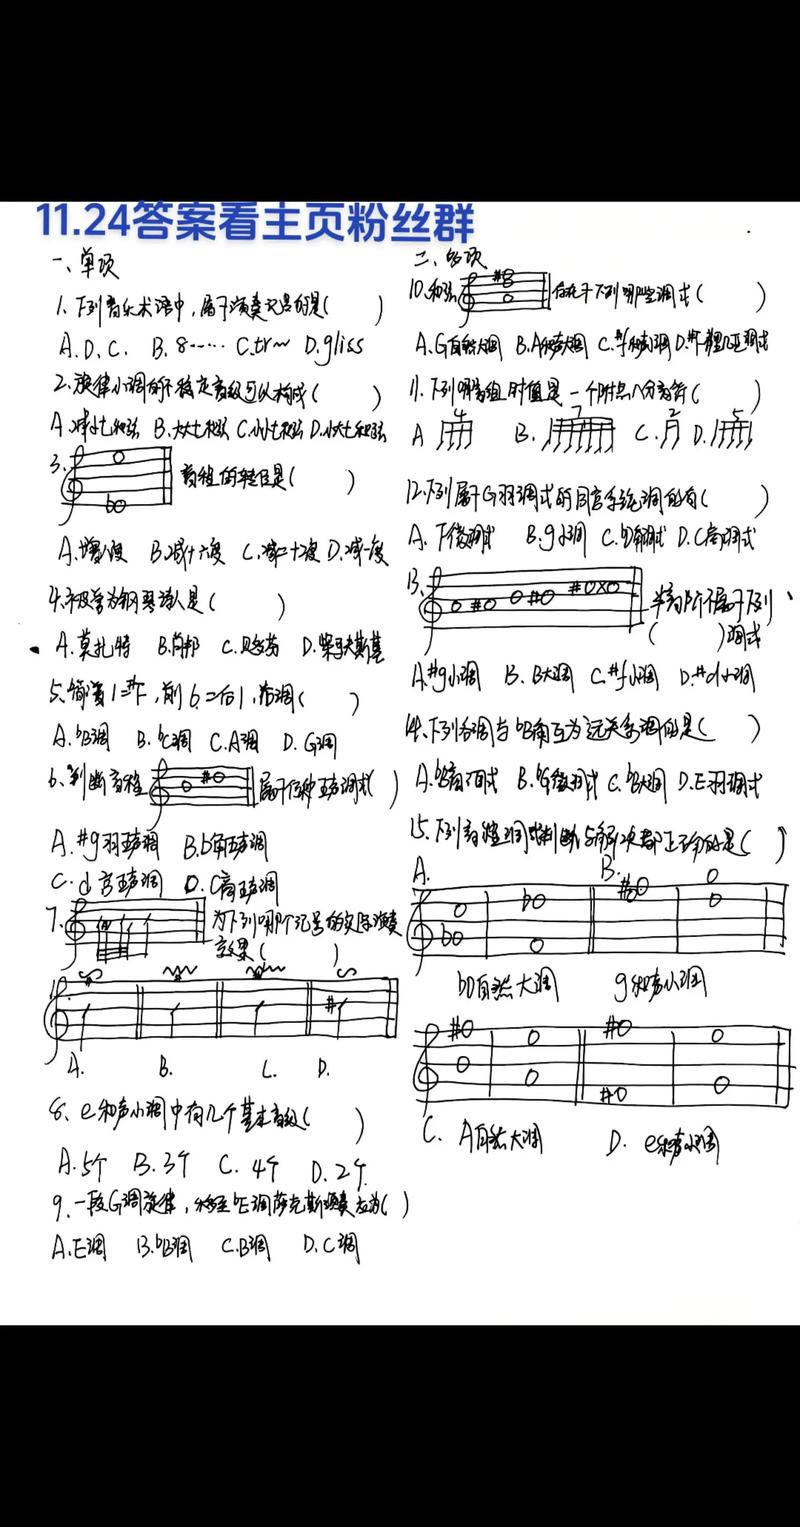 11.24答案看主页粉丝群
一、单项
1. 下列音乐术语中,属于演奏记号的是( )
A. D.C. B. 8…… C. tr~ D. gliss
2. 旋律小调的不稳定音级可以构成( )
A. 减小七和弦 B. 大大七和弦 C. 小小七和弦 D. 小大七和弦
3. 音程的转位是( )
A. 增八度 B. 减十六度 C. 减二十二度 D. 减一度
4. 被誉为钢琴诗人是( )
A. 莫扎特 B. 肖邦 C. 贝多芬 D. 柴可夫斯基
5. 简谱1=#F,前6=后1,后调( )
A. bB调 B. bC调 C. A调 D. G调
6. 判断音程 属于何种五声调式( )
A. #g羽五声调 B. b角五声调
C. d宫五声调 D. C商五声调
7. 为下列哪个记号的实际演奏
效果( )
A. B. C. D.
8. e和声小调中有几个基本音级( )
A. 5个 B. 3个 C. 4个 D. 2个
9. 一段G调旋律,移至bE调萨克斯演奏应为( )
A. E调 B. bB调 C. B调 D. C调
二、多项
10. 和弦 存在于下列哪些调式( )
A. G自然大调 B. A和声大调 C. #f和声小调 D. #f弗里几亚调式
11. 下列哪音组时值是一个附点八分音符( )
A 4 B. 7 C. 2 D. 5
12. 下列属于G羽调式的同宫系统调的有( )
A. F徵调式 B. g小调 C. bD角调式 D. C商调式
13. 半音阶不属于下列
( )调式
A. #g小调 B. B大调 C. #f小调 D. #d小调
14. 下列各调与bB角互为远关系调的是( )
A. bB商调式 B. bG徵调式 C. bB大调 D. E羽调式
15. 下列音程调式判断与解决都正确的是( )
A. B.
bD自然大调 g和声小调
C. A自然大调 D. e和声小调